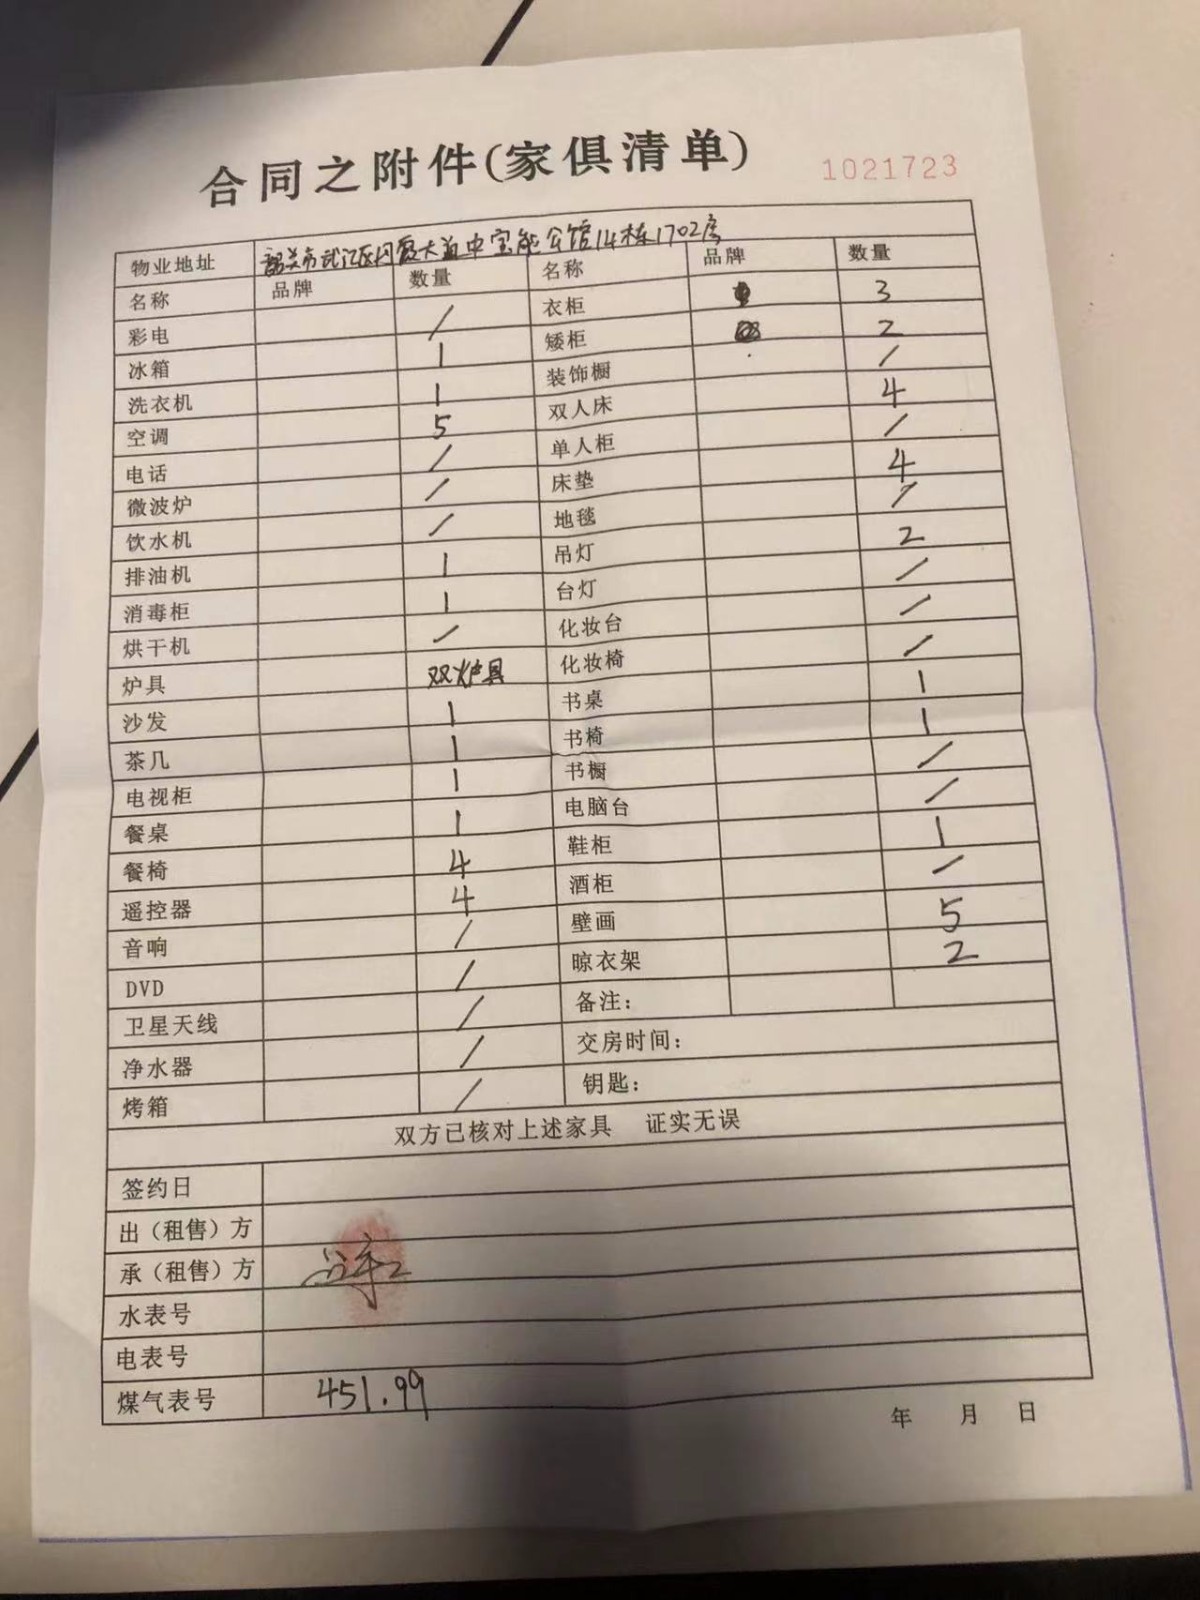 合同之附件(家俱清单)
1021723
物业地址 韶关市武江区 大道中宝能公馆14栋1702房
名称 品牌 数量 名称 品牌 数量
彩电 / 衣柜 3
冰箱 1 矮柜 2
洗衣机 1 装饰橱 /
空调 5 双人床 4
电话 / 单人柜 /
微波炉 / 床垫 4
饮水机 / 地毯 /
排油机 1 吊灯 2
消毒柜 1 台灯 /
烘干机 / 化妆台 /
炉具 双炉具 化妆椅 /
沙发 1 书桌 1
茶几 1 书椅 1
电视柜 1 书橱 /
餐桌 1 电脑台 /
餐椅 4 鞋柜 1
遥控器 4 酒柜 /
音响 / 壁画 5
DVD / 晾衣架 2
卫星天线 / 备注：
净水器 / 交房时间：
烤箱 / 钥匙：
双方已核对上述家具 证实无误
签约日
出（租售）方
承（租售）方
水表号
电表号
煤气表号 451.99
年 月 日